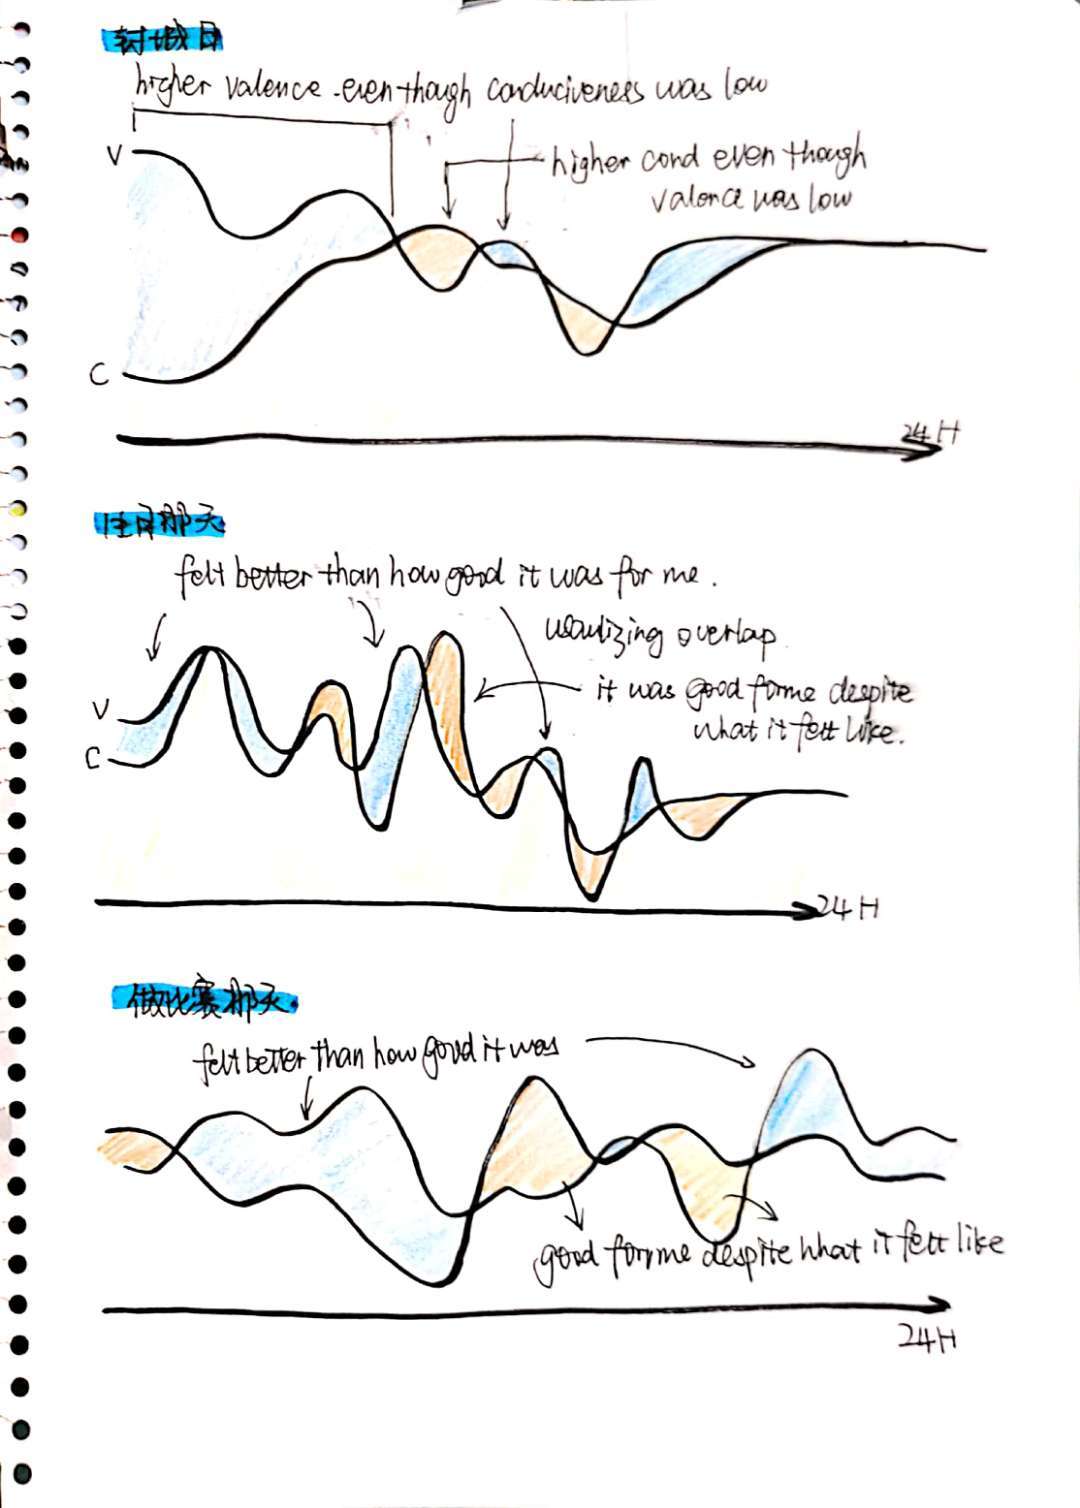 higher valence even though conduciveness was low
V
higher cond even though
valence was low
C
24H
那天
felt better than how good it was for me.
overlap
V
it was good for me despite
what it felt like.
C
24H
做比赛那天
felt better than how good it was
good for me despite what it felt like
24H